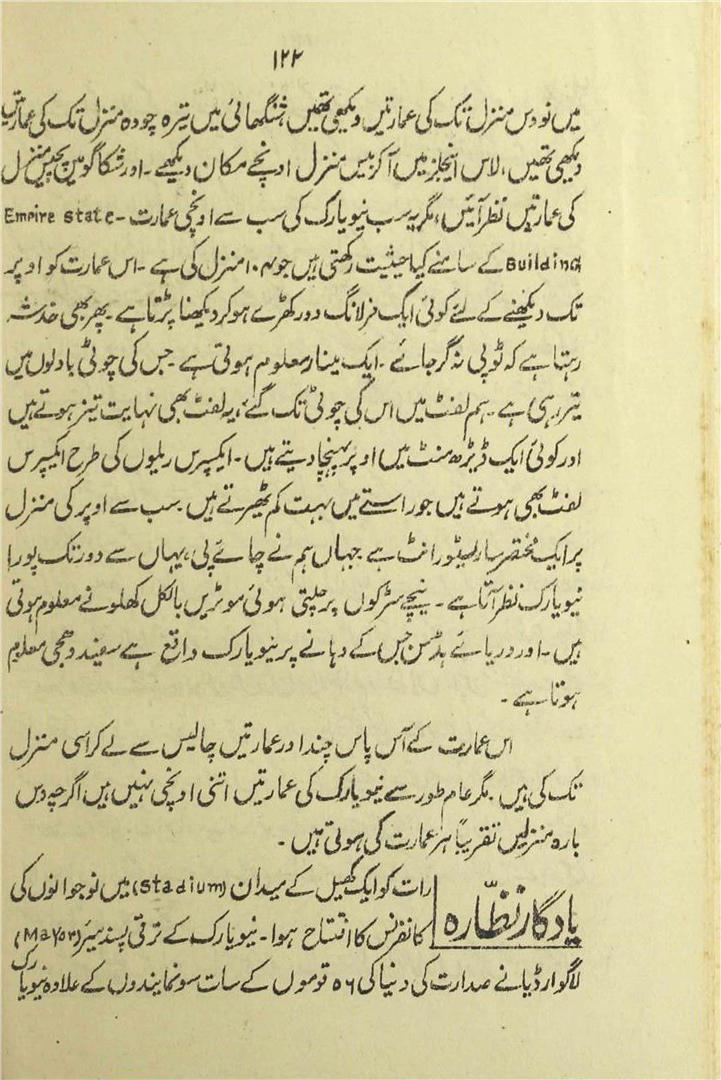 ۱۲۲
میں نو دس منزل تک کی عمارتیں دیکھی تھیں شنگھائی میں تیرہ چودہ منزل تک کی عمارتیں
دیکھی تھیں، لاس اینجلز میں آکر بیس منزل اونچے مکان دیکھے ۔ اور شکاگو میں پچیس منزل
کی عمارتیں نظر آئیں، مگر یہ سب نیویارک کی سب سے اونچی عمارت ۔ Empire State
Building کے سامنے کیا حیثیت رکھتی ہیں جو ۱۰۴ منزل کی ہے ۔ اس عمارت کو اوپر
تک دیکھنے کے لئے کوئی ایک فرلانگ دور کھڑے ہو کر دیکھنا پڑتا ہے ۔ پھر بھی خدشہ
رہتا ہے کہ ٹوپی نہ گر جائے ۔ ایک مینار معلوم ہوتی ہے ۔ جس کی چوٹی بادلوں میں
تیر رہی ہے ۔ ہم لفٹ میں اس کی چوٹی تک گئے، یہ لفٹ بھی نہایت تیز ہوتے ہیں
اور کوئی ایک ڈیڑھ منٹ میں اوپر پہنچا دیتے ہیں ۔ ایکسپرس ریلوں کی طرح ایکسپرس
لفٹ بھی ہوتے ہیں جو راستے میں بہت کم ٹھیرتے ہیں ۔ سب سے اوپر کی منزل
پر ایک مختصر سا ریسٹورانٹ ہے جہاں ہم نے چائے پی، یہاں سے دور تک پورا
نیویارک نظر آتا ہے ۔ نیچے سڑکوں پر چلتی ہوئی موٹریں بالکل کھلونے معلوم ہوتی
ہیں ۔ اور دریائے ہڈسن جس کے دہانے پر نیویارک واقع ہے سفید دھجی معلوم
ہوتا ہے ۔
اس عمارت کے آس پاس چند اور عمارتیں چالیس سے لے کر اسی منزل
تک کی ہیں ۔ مگر عام طور سے نیویارک کی عمارتیں اتنی اونچی نہیں ہیں اگرچہ دس
بارہ منزلیں تقریباً ہر عمارت کی ہوتی ہیں ۔
یادگار نظّارہ
رات کو ایک کھیل کے میدان (Stadium) میں نوجوانوں کی
کانفرنس کا افتتاح ہوا ۔ نیویارک کے ترقی پسند میئر (Mayor)
لاگوارڈیا نے صدارت کی دنیا کی ۵۶ قوموں کے سات سو نمایندوں کے علاوہ نیویارک